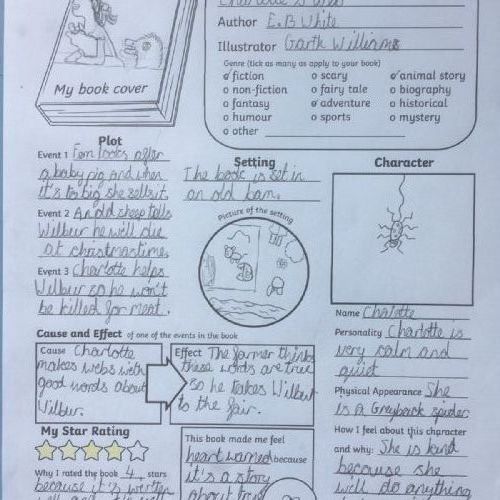 Charlotte's Web
Author E.B White
Illustrator Garth Williams
Genre (tick as many as apply to your book)
fiction
scary
animal story
non-fiction
fairy tale
biography
fantasy
adventure
historical
humour
sports
mystery
other
My book cover
Plot
Event 1 Fern looks after
a baby pig and when
it's to big she sells it.
Event 2 An old sheep tells
Wilbur he will die
at christmastime.
Event 3 Charlotte helps
Wilbur so he won't
be killed for meat.
Setting
The book is set in
an old barn.
Picture of the setting
Character
Name Charlotte
Personality Charlotte is
very calm and
quiet
Physical Appearance She
is a Greyback spider
How I feel about this character
and why: She is kind
because she
will do anything
Cause and Effect of one of the events in the book
Cause Charlotte
makes webs with
good words about
Wilbur.
Effect The farmer thinks
these words are true
so he takes Wilbur
to the fair.
My Star Rating
Why I rated the book 4 stars
because it's written
well and
This book made me feel
heart warmed because
it's a story
about true